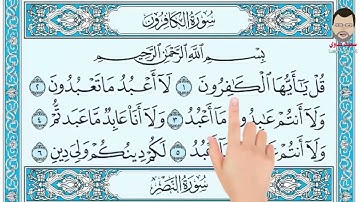 سُورَةُ الكَافِرُونَ
بِسْمِ اللَّهِ الرَّحْمَٰنِ الرَّحِيمِ
قُلْ يَٰٓأَيُّهَا ٱلْكَٰفِرُونَ ١ لَآ أَعْبُدُ مَا تَعْبُدُونَ ٢
وَلَآ أَنتُمْ عَٰبِدُونَ مَآ أَعْبُدُ ٣ وَلَآ أَنَا۠ عَابِدٌ مَّا عَبَدتُّمْ ٤
وَلَآ أَنتُمْ مَآ أَعْبُدُ ٥ لَكُمْ دِينُكُمْ وَلِيَ دِينِ ٦
سُورَةُ النَّصْرِ